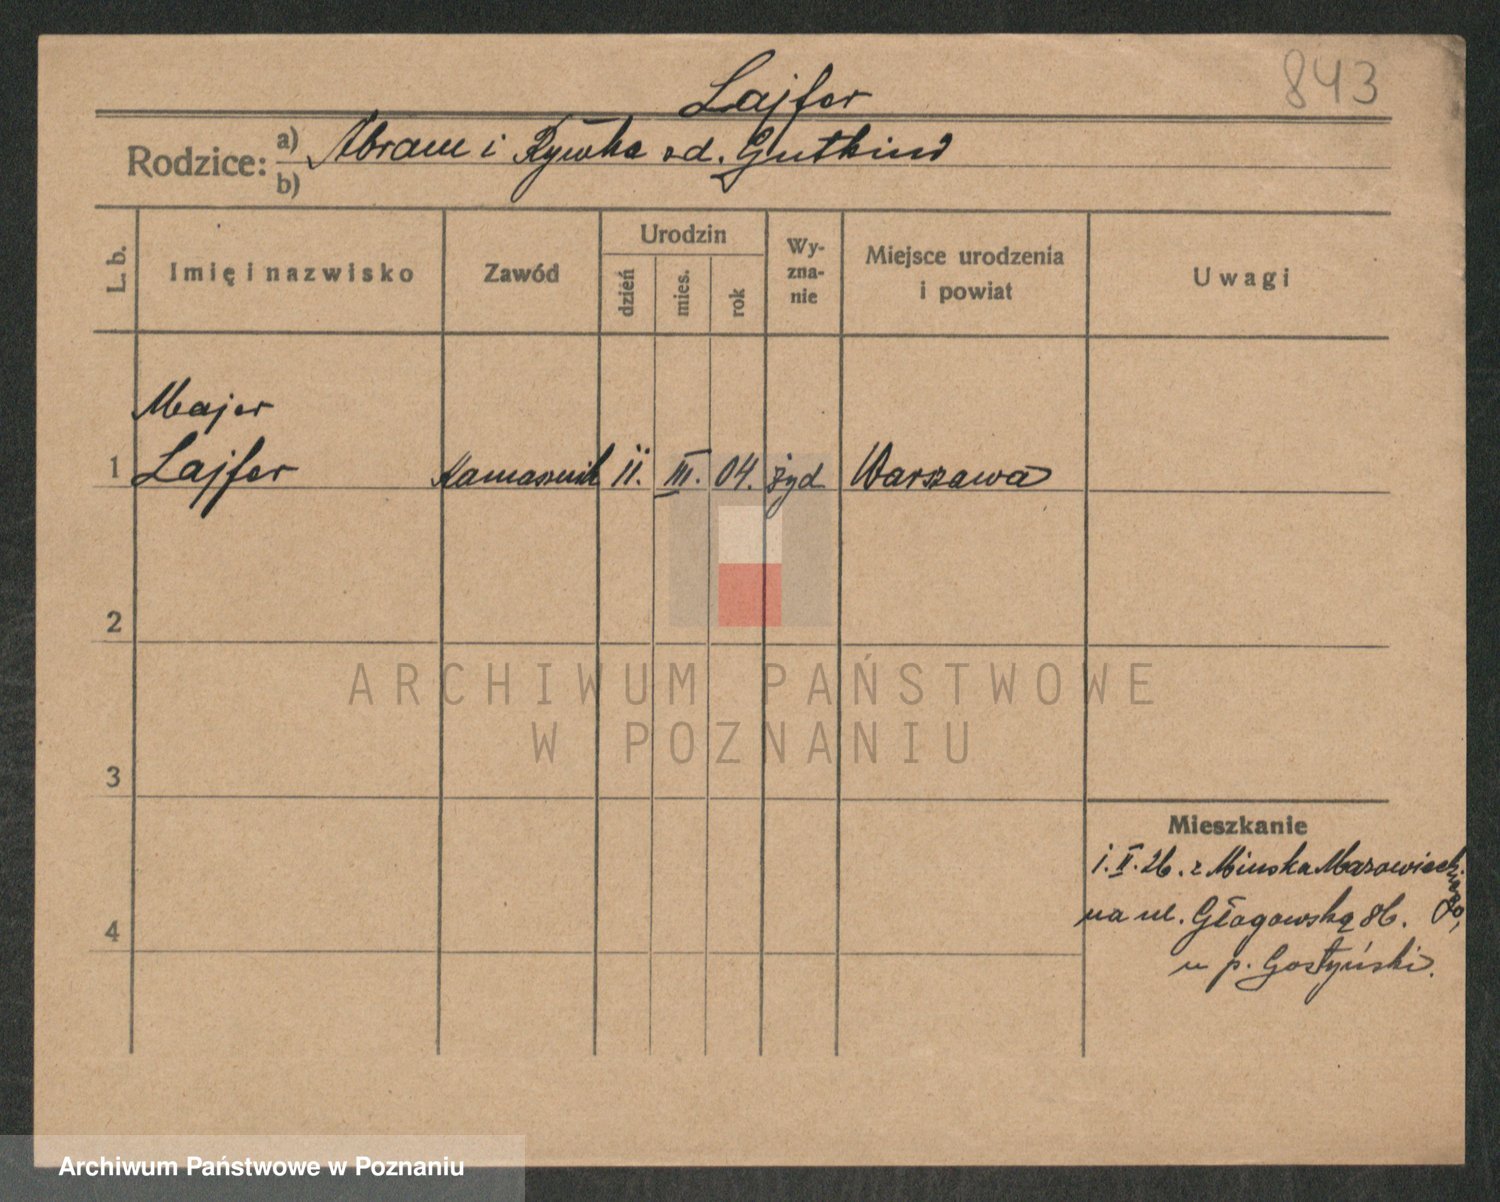 843
Lajfer
Rodzice: a) Abram i Rywka zd. Gutkind
b)
L. b. Imię i nazwisko Zawód Urodzin dzień mies. rok Wy-zna-nie Miejsce urodzenia i powiat Uwagi
Majer
1 Lajfer Kamasznik 11. III. 04. żyd Warszawa
2
ARCHIWUM PAŃSTWOWE
W POZNANIU
3
Mieszkanie
1. II. 26. z Mińska Mazowieckiego,
na ul. Głogowską 86.
4
u p. Gostyński.
Archiwum Państwowe w Poznaniu